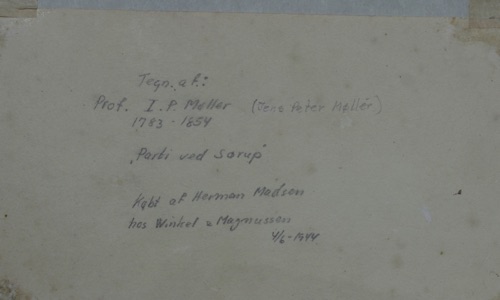 Tegn. af:
Prof. I. P. Møller (Jens Peter Møller)
1783 - 1854
"Parti ved Sørup"
Købt af Herman Madsen
hos Winkel & Magnussen
4/6 - 1944